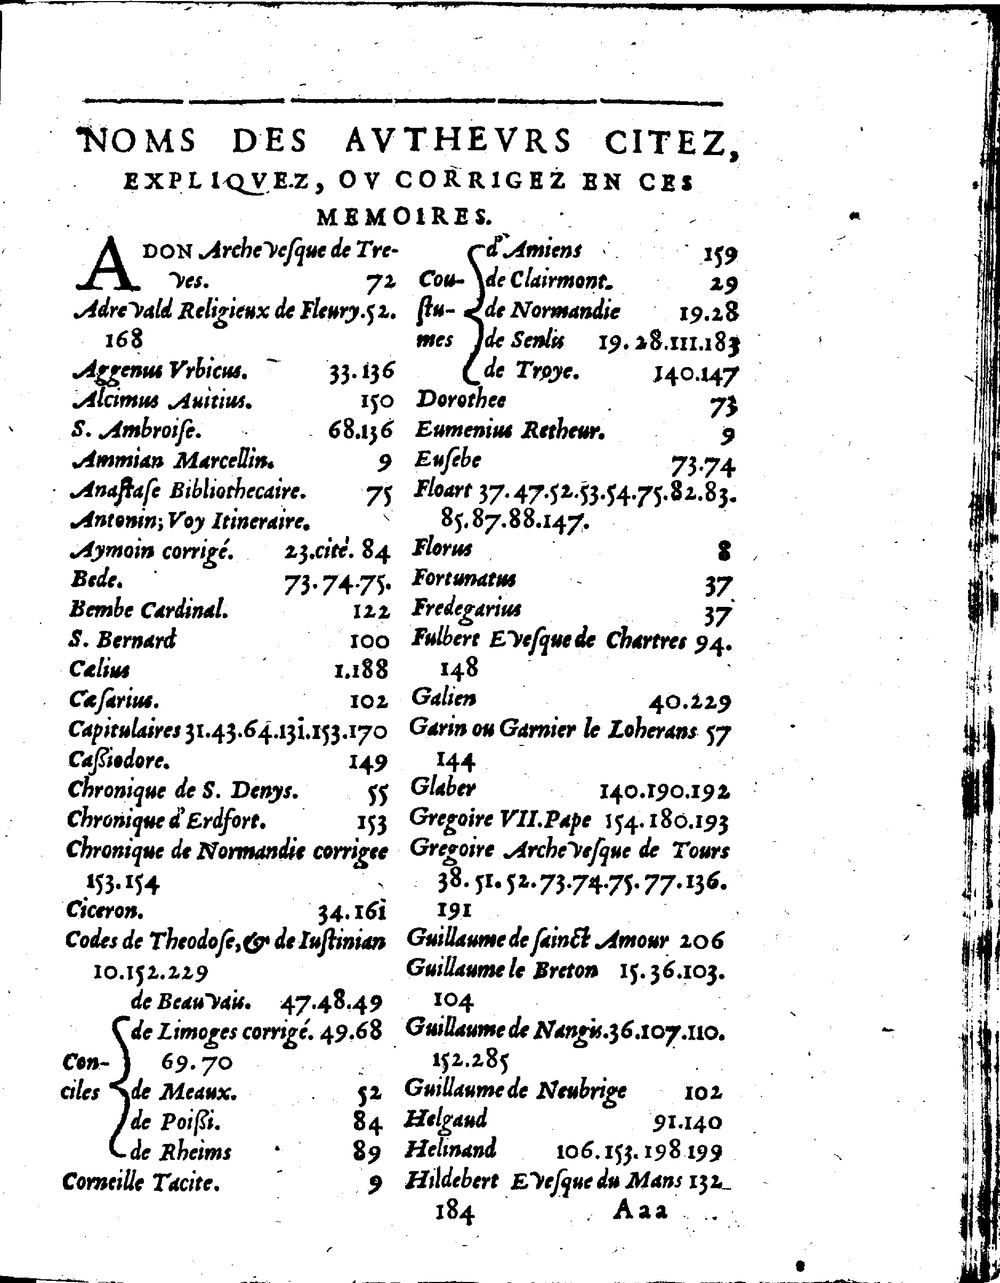 NOMS DES AVTHEVRS CITEZ,
EXPLIQVEZ, OV CORRIGEZ EN CES
MEMOIRES.
ADON Archevesque de Tre-
ves. 72
Adrevald Religieux de Fleury.52.
168
Aggenus Vrbicus. 33.136
Alcimus Auitius. 150
S. Ambroiſe. 68.136
Ammian Marcellin. 9
Anaſtaſe Bibliothecaire. 75
Antonin; Voy Itineraire.
Aymoin corrigé. 23.cité. 84
Bede. 73.74.75.
Bembe Cardinal. 122
S. Bernard 100
Cælius 1.188
Cæſarius. 102
Capitulaires 31.43.64.131.153.170
Caßiodore. 149
Chronique de S. Denys. 55
Chronique d'Erdfort. 153
Chronique de Normandie corrigee
153.154
Ciceron. 34.161
Codes de Theodoſe, & de Iuſtinian
10.152.229
de Beauvais. 47.48.49
de Limoges corrigé. 49.68
Con- 69.70
ciles de Meaux. 52
de Poißi. 84
de Rheims 89
Corneille Tacite. 9
d'Amiens 159
Cou- de Clairmont. 29
ſtu- de Normandie 19.28
mes de Senlis 19.28.111.183
de Troye. 140.147
Dorothee 73
Eumenius Retheur. 9
Euſebe 73.74
Floart 37.47.52.53.54.75.82.83.
85.87.88.147.
Florus 8
Fortunatus 37
Fredegarius 37
Fulbert Eveſque de Chartres 94.
148
Galien 40.229
Garin ou Garnier le Loherans 57
144
Glaber 140.190.192
Gregoire VII.Pape 154.180.193
Gregoire Archeveſque de Tours
38.51.52.73.74.75.77.136.
191
Guillaume de ſainct Amour 206
Guillaume le Breton 15.36.103.
104
Guillaume de Nangis.36.107.110.
152.285
Guillaume de Neubrige 102
Helgaud 91.140
Helinand 106.153.198 199
Hildebert Eveſque du Mans 132
184 Aaa